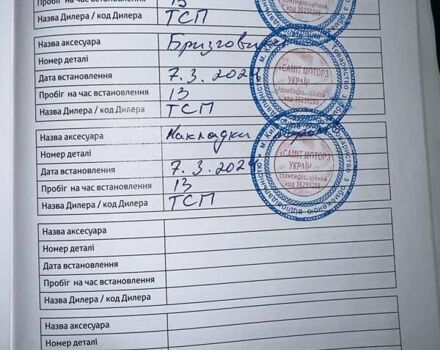 Пробіг на час встановлення 13
Назва Дилера / код Дилера ТСП
Назва аксесуара
Номер деталі
Дата встановлення 7.3.2024
Пробіг на час встановлення 13
Назва Дилера / код Дилера ТСП
Назва аксесуара Накладки
Номер деталі
Дата встановлення 7.3.2024
Пробіг на час встановлення 13
Назва Дилера / код Дилера ТСП
Назва аксесуара
Номер деталі
Дата встановлення
Пробіг на час встановлення
Назва Дилера / код Дилера
Назва аксесуара
Номер деталі
код 36250288
«САМІТ МОТОРЗ
УКРАЇНА»
Ідентифікаційний
код 36250288
«САМІТ МОТОРЗ
УКРАЇНА»
Ідентифікаційний
код 36250288